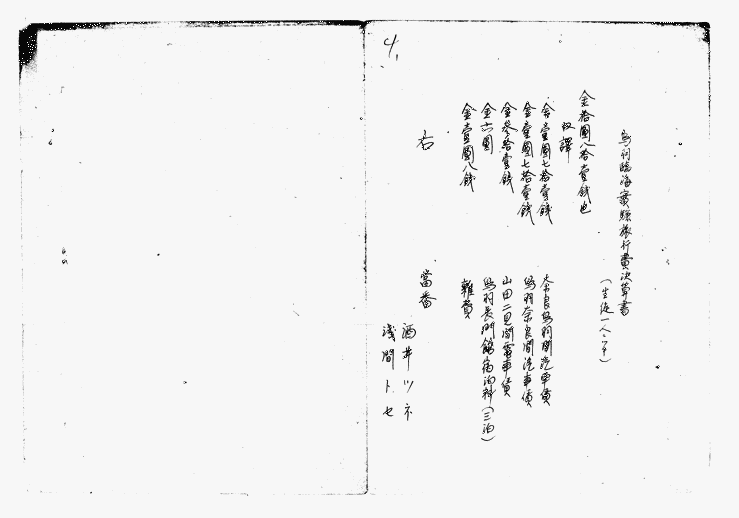 4,
鳥羽臨海実験旅行費決算書
(生徒一人ニ付)
金拾圓八拾壹銭也
収譯
金壹圓七拾壹銭 奈良鳥羽間汽車賃
金壹圓七拾壹銭 鳥羽奈良間汽車賃
金参拾壹銭 山田二見間電車賃
金六圓 鳥羽長門館宿泊料(三泊)
金壹圓八銭 雜費
右
當番
酒井ツネ
浅間トセ